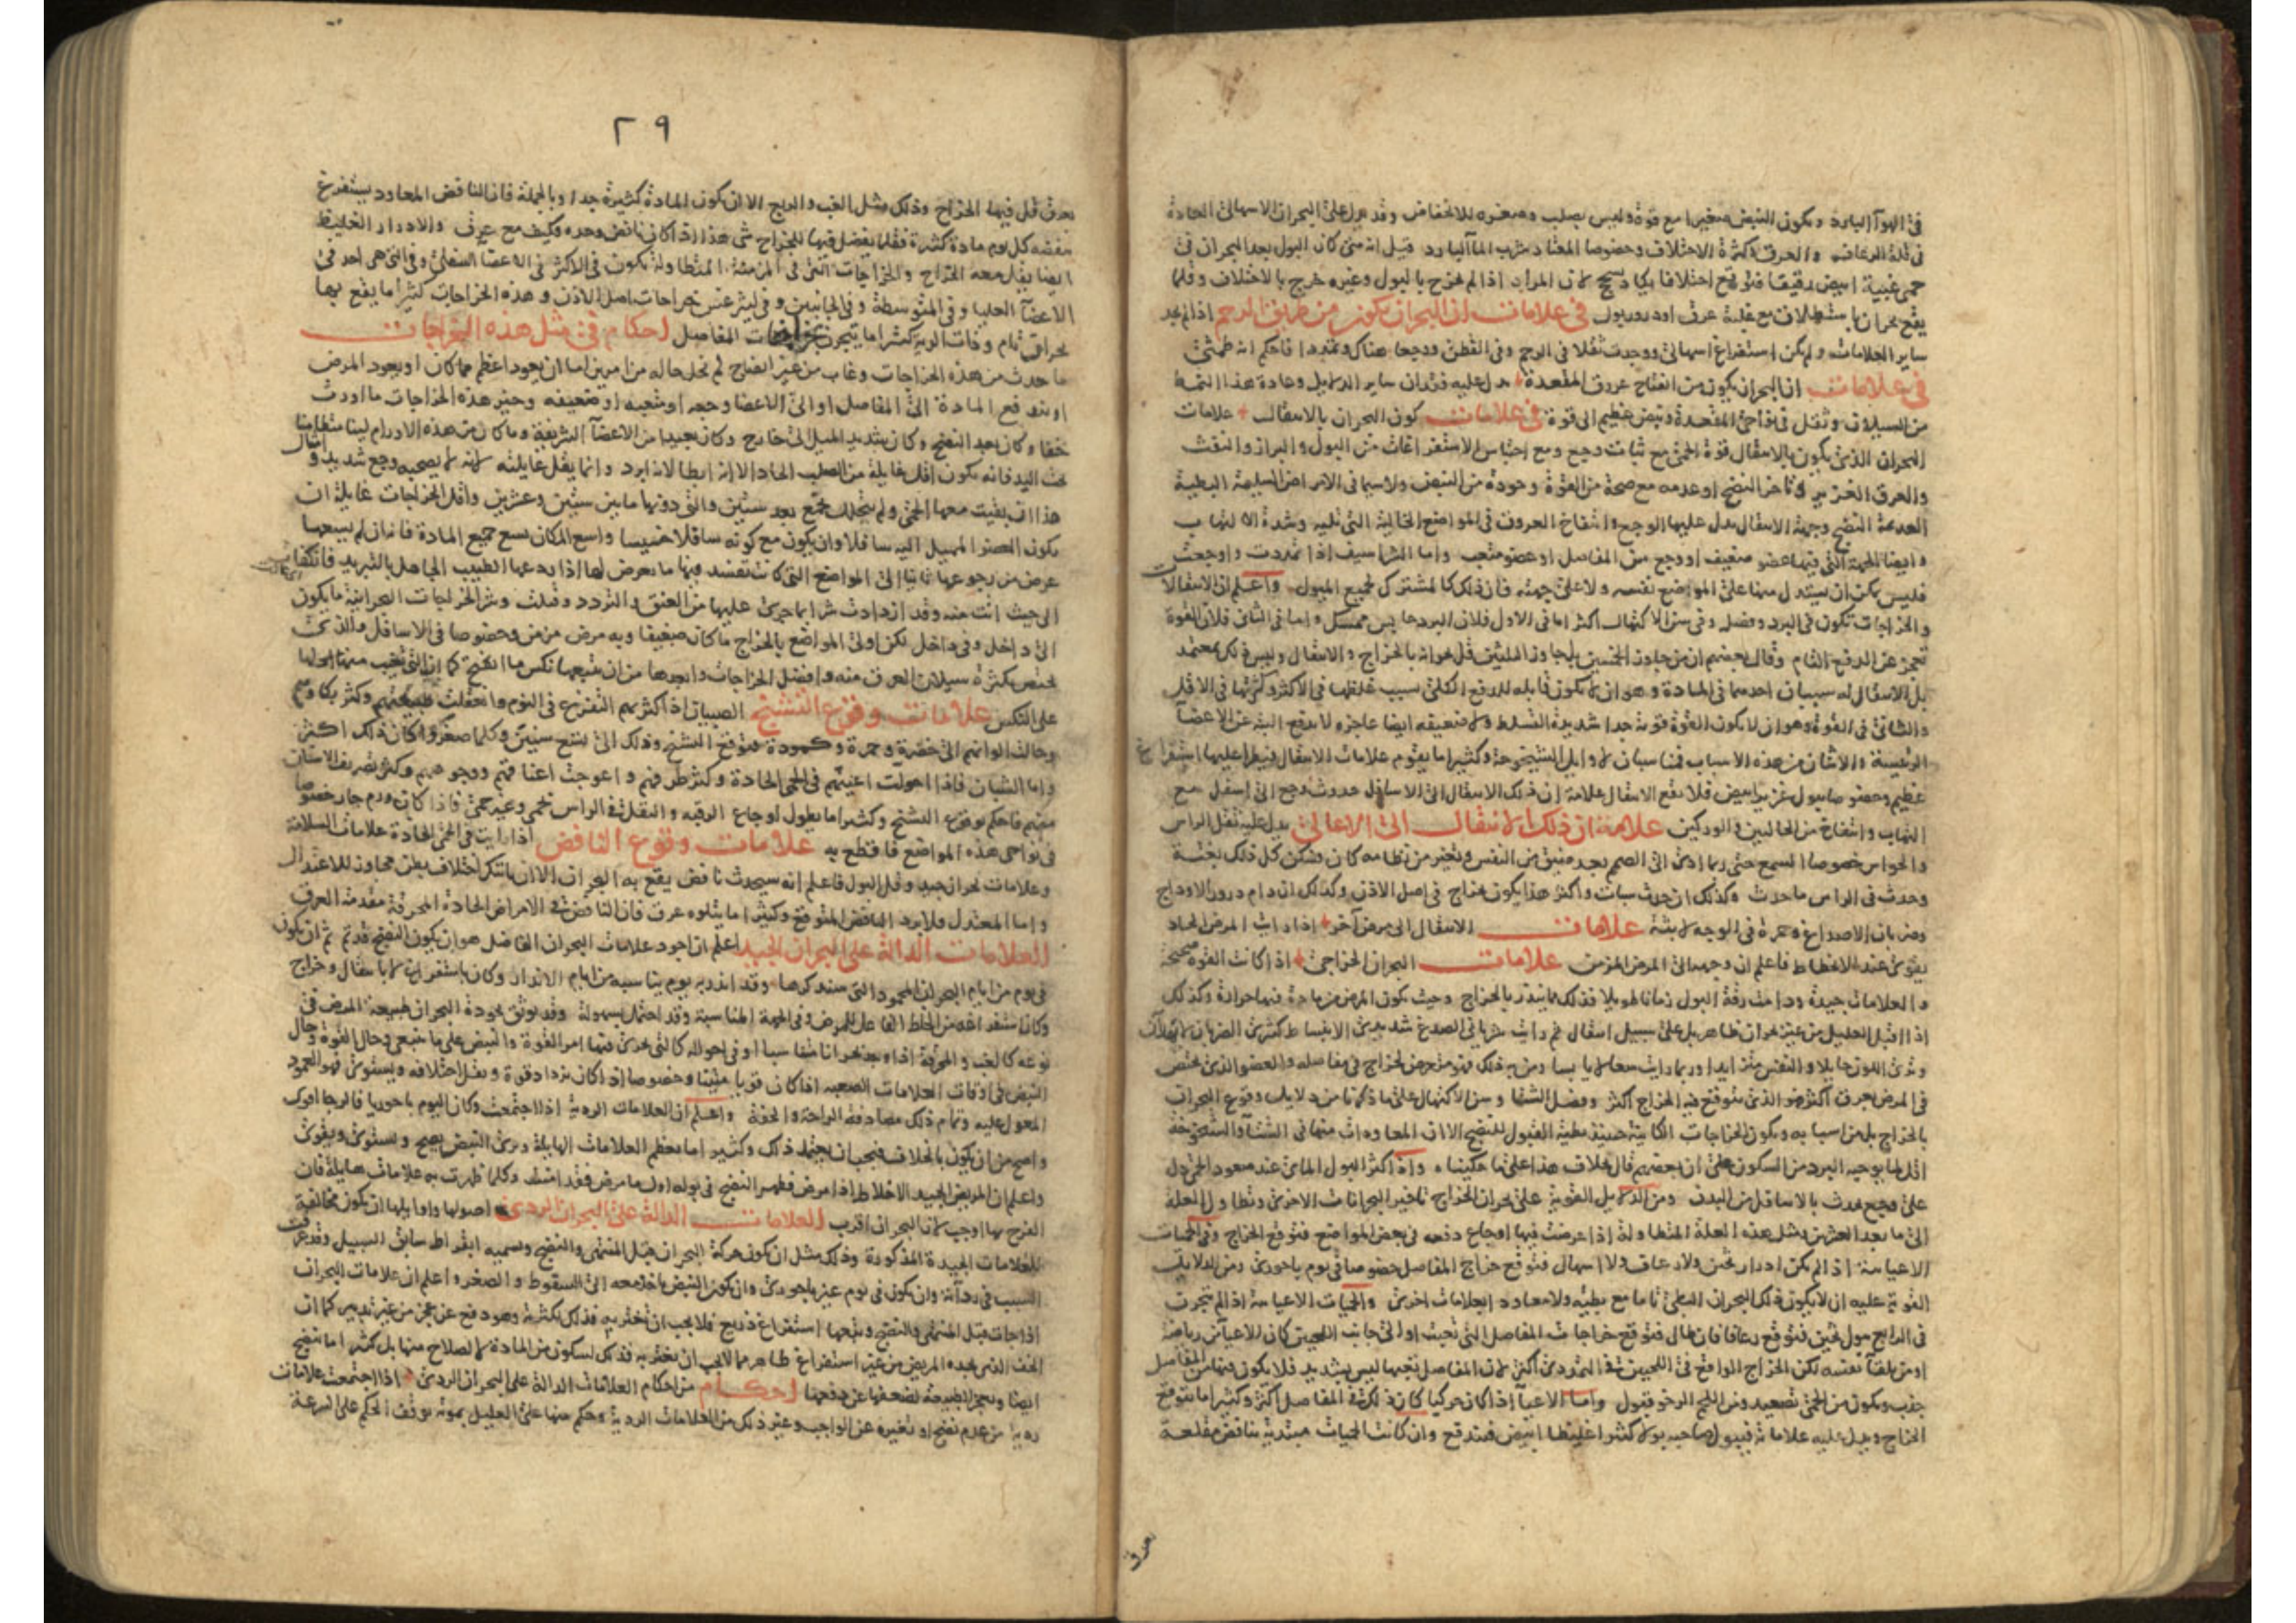 في الهواء البارد ويكون النبض صغيرا مع قوة وليس بصلب وصغره للانخفاض وقد يدل على البحران الاسهالي العادة
في قلة الرعاف والعرق وكثرة الاختلاف وخصوصا المعتاد شرب الماء البارد قيل انه متى كان البول بعد البحران في
حمى غبية ابيض رقيقا فتوقع اختلافا يكاد يسحج لان المرار اذا لم يخرج بالبول وغيره خرج بالاختلاف وقلما
يقع بحران باستطلاق مع غلبة عرق او درور بول في علامات ان البحران يكون من طريق الرحم اذا لم يجد
ساير العلامات ولم يكن استفراغ اسهالي ووجدت ثقلا في الرحم وفي القطن ووجعا هناك وتمددا فاحكم انه طمثي
في علامات ان البحران يكون من انفتاح عروق المقعدة يدل عليه فقدان ساير الدلايل وعادة هذا النمط
من السيلان وثقل في نواحي المقعدة ونبض عظيم الى قوة في علامات كون البحران بالانتقال علامات
البحران الذي يكون بالانتقال قوة الحمى مع ثبات وجع ومع احتباس الاستفراغات من البول والبراز والنفث
والعرق الغزير او تاخر النضج او عدمه مع صحة من القوة وجودة من النبض ولاسيما في الامراض السليمة البطيئة
العديمة النضج وجهة الانتقال يدل عليها الوجع وانتفاخ العروق في المواضع الخالية التي تليه وشدة الالتهاب
وايضا الجهة التي فيها عضو ضعيف او وجع من المفاصل او عضو متعب واما الشراسيف اذا تمددت واوجعت
فليس يمكن ان يستدل منها على المواضع نفسه ولا على جهته فان ذلك كالمشترك لجميع الميول واعلم ان الانتقالات
والخراجات تكون في البرد وفصله وفي سن الاكتهال اكثر اما في الاول فلان البرد حابس ممسك واما في الثاني فلان القوة
تعجز عن الدفع التام وقال بعضهم ان من جاوز الخمسين بل جاوز الثلثين قل بحرانه بالخراج والانتقال وليس ذلك بمعتمد
بل الانتقال له سببان احدهما في المادة وهو ان لا يكون قابله للدفع الكلي بسبب غلظها في الاكثر وكثرتها في الاقل
والثاني في القوة وهو ان لا يكون القوة قوية جدا شديدة التسلط ولا ضعيفه ايضا عاجزه لا يدفع البتة عن الاعضا
الرئيسة والاثنان من هذه الاسباب مناسبان لاوايل الشيخوخة وكثيرا ما يقوم علامات الانتقال فيطرا عليها استفراغ
عظيم وخصوصا ببول غزير ابيض فلا يقع الانتقال علامة ان ذلك الانتقال الى الاسافل حدوث وجع الى اسفل مع
التهاب وانتفاخ من الحالبين والوركين علامة ان ذلك الانتقال الى الاعالي يدل عليه ثقل الراس
والحواس خصوصا السمع حتى ربما ادى الى الصمم بعد ضيق من النفس وتغير من نظامه كان فسكن كل ذلك بغتة
وحدث في الراس ما حدث وكذلك ان حدث سبات واكثر هذا يكون بخراج في اصل الاذن وكذلك ان دام درور الاوداج
وضربان الاصداغ وحمرة في الوجه لابثة علامات الانتقال الى مرض آخر اذا رايت المرض الحاد
يقوى عند الانحطاط فاعلم ان وجهه الى المرض المزمن علامات البحران الخراجي اذا كانت القوة صحيحة
والعلامات جيدة ودامت رقة البول زمانا طويلا فذلك مما ينذر بالخراج وحيث يكون المرض من مادة فيها حرارة وكذلك
اذا اقبل العليل من غير بحران ظاهر بل على سبيل انتقال ثم رايت شريانى الصدغ شديدى الانبساط كثيرى الضربان
وترى اللون حايلا والنفس متزايدا وربما رايت سعالا يابسا ومن به ذلك فهو متعرض لخراج في مفاصله والعضو الذي يختص
في المرض بعرق اكثر هو الذي يتوقع فيه الخراج اكثر وفصل الشتا وسن الاكتهال على ما ذكرنا من دلايل وقوع البحران
بالخراج بل من اسبابه ويكون الخراجات الكاينة حينئذ بطيئة القبول للنضج الا ان المعاودات منها في الشتا والشيخوخة
اقل لما يوجبه البرد من السكون على ان بعضهم قال بخلاف هذا على ما حكيناه واذا اكثر البول المائي عند صعود الحمى دل
على وجع يحدث بالاسافل من البدن ومن الدلايل القوية على بحران الخراج تاخير البحرانات الاخرى وتطاول العلة
الى ما بعد العشرين بمثل هذه العلة المتطاولة اذا عرضت فيها اوجاع دفعه في بعض المواضع فتوقع الخراج وفي الحميات
الاعيائية اذا لم يكن ادرار ثخين ولا رعاف ولا اسهال فتوقع خراج المفاصل خصوصا في يوم باحوري ومن الدلايل
القوية عليه ان لا يكون ذلك البحران البطي تاما مع بطئه ولا معاودا بعلامات اخرى والحميات الاعيائية اذا لم تبحرن
في الرابع ببول ثخين فتوقع رعافا فان طال فتوقع خراجات المفاصل التي تعبت او الى جانب اللحيين كان للاعيا من رياضة
او من تلقا نفسه لكن الخراج الواقع في اللحيين في التمددي اكثر لان المفاصل تعبها ليس بشديد فلا يكون فيها من المفاصل
جذب ويكون من الحمى تصعيد ومن اللحم الرخو قبول واما الاعيا اذا كان حركيا كان ذلك في المفاصل اكثر وكثيرا ما يتوقع
الخراج ويدل عليه علاماته فيبول صاحبه بولا كثيرا غليظا ابيض فيندفع وان كانت الحميات مبتدية بنافض مقلعة
بعرق
٢٩
بعرق قل فيها الخراج وذلك مثل الغب والربع الا ان يكون المادة كثيرة جدا وبالجملة فان النافض المعاود يستفرغ
نفضه كل يوم مادة كثيرة فقلما يفضل فيها للخراج شى هذا اذا كان نافض وحده فكيف مع عرق والادرار الغليظ
ايضا يقل معه الخراج والخراجات التي في المزمنة المتطاولة يكون في الاكثر في الاعضا السفلى وفي التي هي احد في
الاعضا العليا وفي المتوسطة وفي الجانبين وفي ليثرغس خراجات اصل الاذن وهذه الخراجات كثيرا ما يقع بها
بحران تمام وذات الرية كثيرا ما يتبحرن بخراجات المفاصل احكام في مثل هذه الخراجات
ما حدث من هذه الخراجات وغاب من غير انفتاح لم يخل حاله من امرين اما ان يعود اعظم مما كان او يعود المرض
او يندفع المادة الى المفاصل او الى الاعضا وجعه او متعبه او ضعيفه وخير هذه الخراجات ما اورث
خفا وكان بعد النضج وكان شديد الميل الى خارج وكان بعيدا من الاعضا الشريفة وما كان من هذه الاورام لينا متطامنا
تحت اليد فانه يكون اقل غايلة من الصلب الحاد الا انه ابطا لانه ابرد وانما يقل غايلته لانه لا يصحبه وجع شديد وامثال
هذا ان بقيت معها الحمى ولم تتحلل يجمع بعد ستين والتي دونها ما بين ستين وعشرين واقل الخراجات غايلة ان
يكون العضو المسيل اليه سافلا وان يكون مع كونه سافلا خسيسا واسع المكان يسع جميع المادة فانه ان لم يسعها
عرض من رجوعها ثانيا الى المواضع التي كانت تفسد فيها ما يعرض لها اذا ردعها الطبيب الجاهل بالتبريد فانكفات
الى حيث اتت منه وقد ازدادت شرا بما جرى عليها من العفن والتردد وقتلت وشر الخراجات البحرانية ما يكون
الى داخل وفي داخل لكن اولى المواضع بالخراج ما كان ضعيفا وبه مرض مزمن وخصوصا في الاسافل والذي
يختص بكثرة سيلان العرق منه وافضل الخراجات وابعدها من ان يتبعها نكس ما انفتح كما ان التي تغيب منها ادلها
على النكس علامات وقوع التشنج الصبيان اذا اكثر بهم التفزع في النوم وانعقلت طبيعتهم وكثر بكاوهم
وحالت الوانهم الى خضرة وحمرة وكمودة فتوقع التشنج وذلك الى تسع سنين وكلما صغروا كان ذلك اكثر
واما الشبان فاذا احولت اعينهم في الحمى الحادة وكثر طرفهم واعوجت اعناقهم ووجوههم وكثر تصريف الاسنان
منهم فاحكم بوقوع التشنج وكثيرا ما يطول اوجاع الرقبه والثقل في الراس بحمى وغير حمى فاذا كان ورم حار خصوصا
في نواحى هذه المواضع فاقطع به علامات وقوع النافض اذا رايت في الحمى الحادة علامات السلامة
وعلامات بحران جيد وقل البول فاعلم انه سيحدث نافض يقع به البحران الا ان يكون اختلاف بطن مجاوز للاعتدال
واما المعتدل فلا يرد النافض المتوقع وكثيرا ما يتلوه عرق فان النافض في الامراض الحادة المحرقة مقدمة العرق
العلامات الدالة على البحران الجيد اعلم ان اجود علامات البحران الفاضل هو ان يكون النضج قد تم ثم ان يكون
في يوم من ايام البحران المحمود التي سنذكرها وقد انذر به يوم يناسبه من ايام الانذار وكان باستفراغ لا بانتقال وخراج
وكان استفراغه من الخلط الفاعل للمرض وفي الجهة المناسبة وقد احتمل بسهولة وقد يوثق بجودة البحران طبيعة المرض في
نوعه كالغب والمحرقة اذا وجد بحرانا مناسبا او في احواله كالتي يجري فيها امر القوة والنبض على ما ينبغي وحال القوة وحال
النبض في اوقات العلامات الصعبه اذا كان قويا مثبتا وخصوصا اذا كان يزداد قوة ويقل اختلافه ويستوى فهو العمود
المعول عليه وتمام ذلك مصادفة الراحة والخفة واعلم ان العلامات الردية اذا اجتمعت وكان اليوم باحوريا فالرجا اقوى
واصح من ان يكون بالخلاف فيجب ان يعتمد ذلك وكثيرا ما يعظم العلامات الهايلة وترى النبض يصح ويستوى ويقوى
واعلم ان المريض الجيد الاخلاط اذا مرض فظهر النضج في بوله اول ما مرض فقد امنت وكلما ظهرت به علامات هايلة فان
الفرح بها اوجب لان البحران اقرب العلامات الدالة على البحران الردي اصولها واوايلها ان يكون مخالفة
للعلامات الجيدة المذكورة وذلك مثل ان يكون حركة البحران قبل المنتهى والنضج ويسميه ابقراط سابق السبيل وقد عرفت
السبب في رداءته وان يكون في يوم غير باحوري وان يكون النبض ياخذ معه الى السقوط والصغر واعلم ان علامات البحران
اذا جات قبل المنتهى والنضج وتبعها استفراغ ذريع فلا يجب ان تغتر به فذلك لكثرته وهو دفع عن عجز من غير تدبير كما ان
الخف الذي يجده المريض من غير استفراغ ظاهر مما لا يجب ان يغتر به فذلك لسكون من المادة لا لصلاح منها بل كثيرا ما تنضج
ايضا ويعجز الطبيعة لضعفها عن دفعها احكام من احكام العلامات الدالة على البحران الردي اذا اجتمعت علامات
ردية من عدم نضج او تغيره عن الواجب وغير ذلك من العلامات الردية وحكم منها على العليل بموته توقف الحكم على السرعة